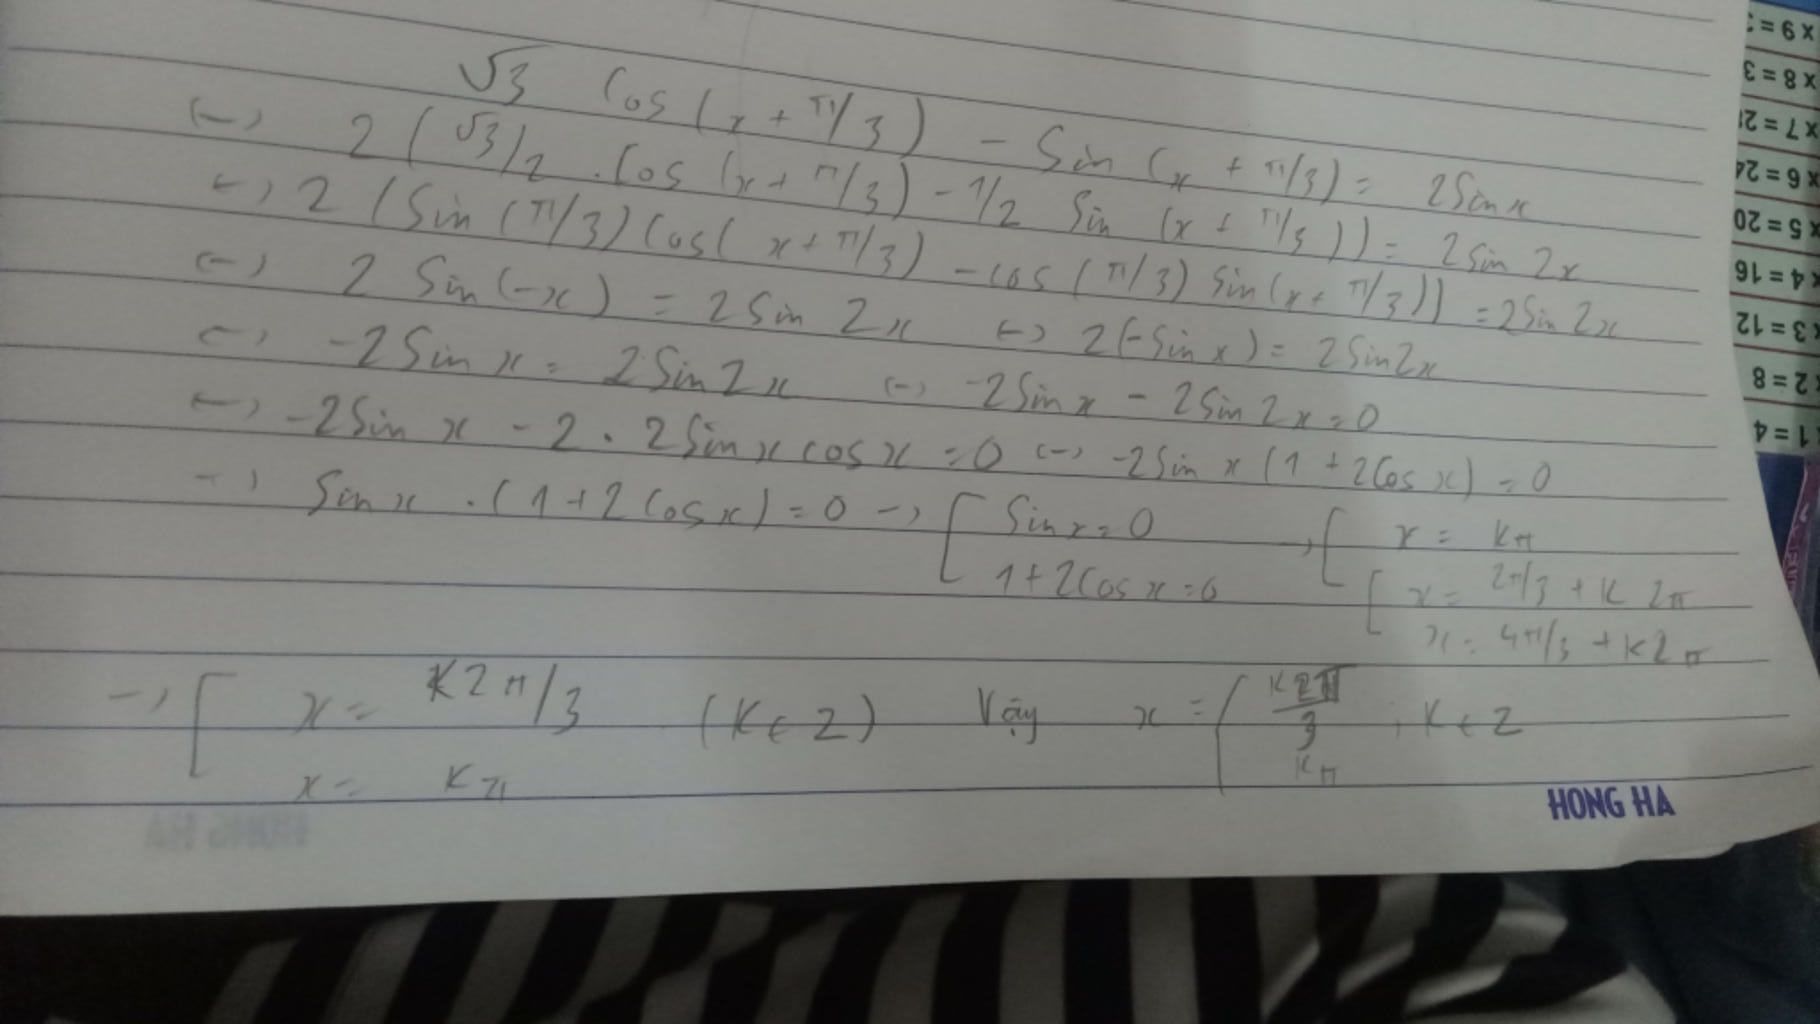 √3 Cos(x + π/3) - Sin (x + π/3) = 2Sin x
(-) 2 ( √3/2 . Cos (x + π/3) - 1/2 Sin (x + π/3)) = 2Sin 2x
(-) 2 (Sin (π/3) Cos( x + π/3) - cos (π/3) Sin(x + π/3)) = 2Sin 2x
(-) 2 Sin (-x) = 2Sin 2x (-) 2(-Sin x) = 2Sin2x
(-) -2Sin x = 2Sin2x (-) -2Sin x - 2Sin 2x = 0
(-) -2Sin x - 2 . 2Sin x cos x = 0 (-) -2Sin x (1 + 2Cos x) = 0
-) Sin x . (1 + 2Cos x) = 0 -) [ Sin x = 0 → [ x = kπ
1 + 2Cos x = 0 [ x = 2π/3 + k 2π
x = 4π/3 + k2π
-) [ x = k2π/3 (k ∈ Z) Vậy x = [ k2π/3 ; k ∈ Z
x = kπ kπ
HONG HA
x 9 = 3
x 8 = 3
x 7 = 28
x 6 = 24
x 5 = 20
x 4 = 16
x 3 = 12
x 2 = 8
x 1 = 4